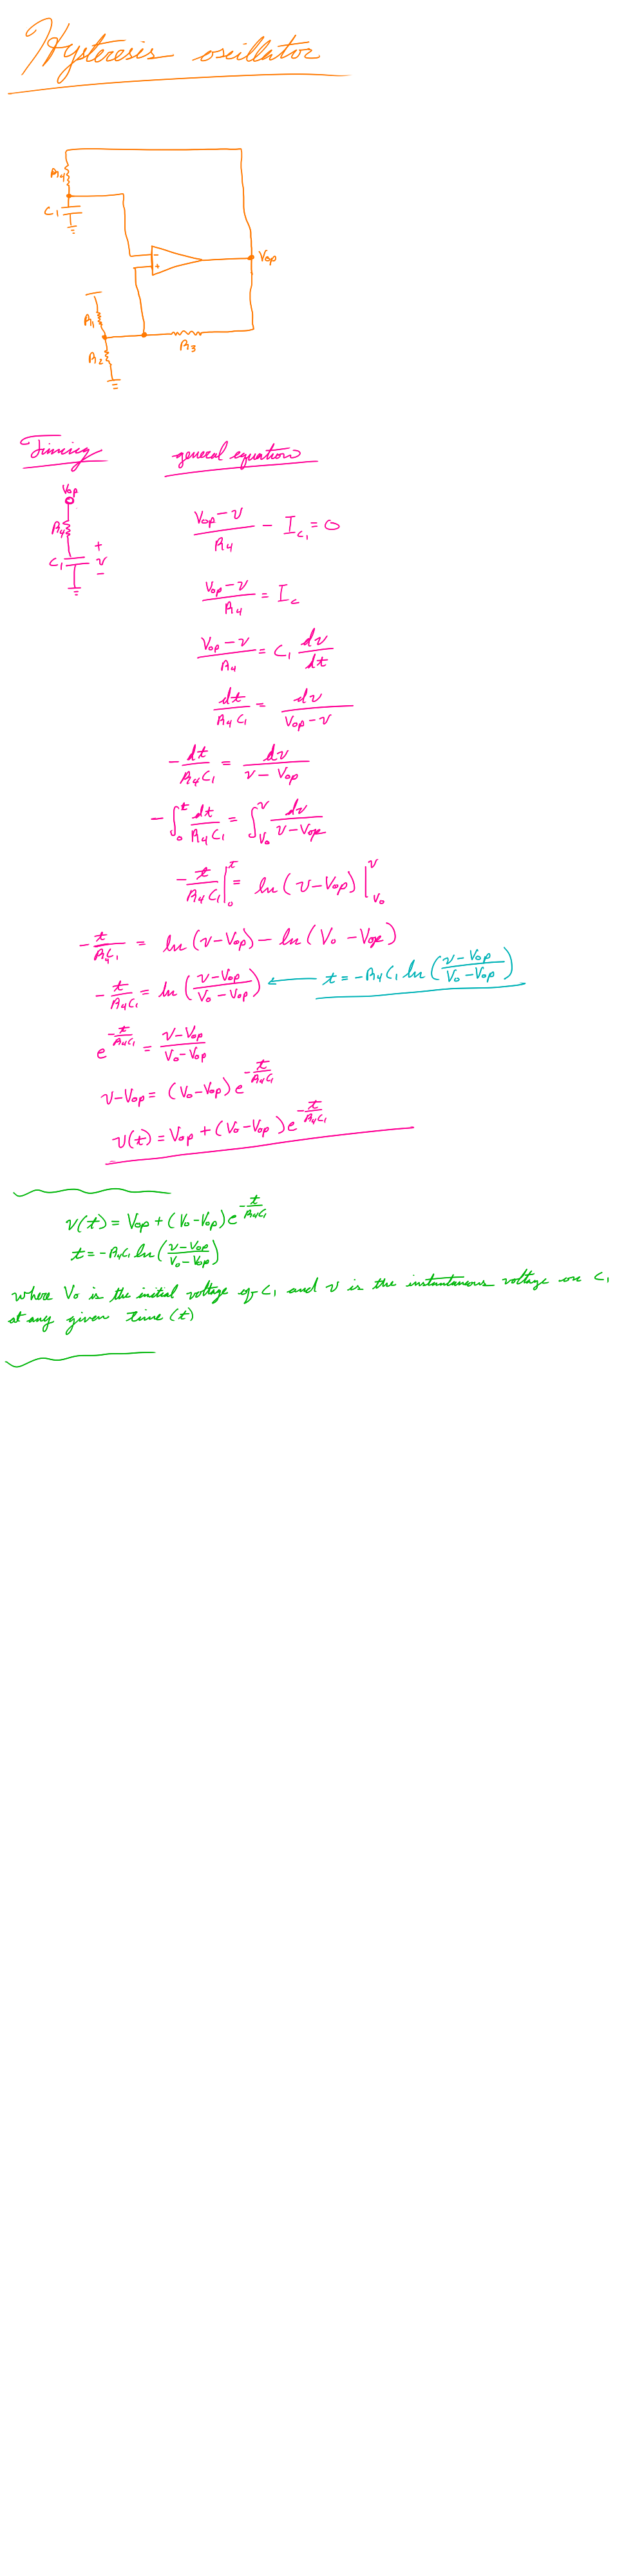 Hysteresis oscillator
R4
C1
-
+
Vop
R1
R2
R3
Timing
general equation
Vop
R4
C1
+
v
-
(Vop - v)/R4 - I_C1 = 0
(Vop - v)/R4 = I_C
(Vop - v)/R4 = C1 dv/dt
dt/(R4 C1) = dv/(Vop - v)
-dt/(R4 C1) = dv/(v - Vop)
-∫₀ᵗ dt/(R4 C1) = ∫_V0^v dv/(v - Vop)
-t/(R4 C1) |₀ᵗ = ln(v - Vop) |_V0^v
-t/(R4 C1) = ln(v - Vop) - ln(V0 - Vop)
-t/(R4 C1) = ln((v - Vop)/(V0 - Vop)) ← t = -R4 C1 ln((v - Vop)/(V0 - Vop))
e^(-t/(R4 C1)) = (v - Vop)/(V0 - Vop)
v - Vop = (V0 - Vop) e^(-t/(R4 C1))
v(t) = Vop + (V0 - Vop) e^(-t/(R4 C1))
v(t) = Vop + (V0 - Vop) e^(-t/(R4 C1))
t = -R4 C1 ln((v - Vop)/(V0 - Vop))
where V0 is the initial voltage of C1 and v is the instantaneous voltage on C1
at any given time (t)